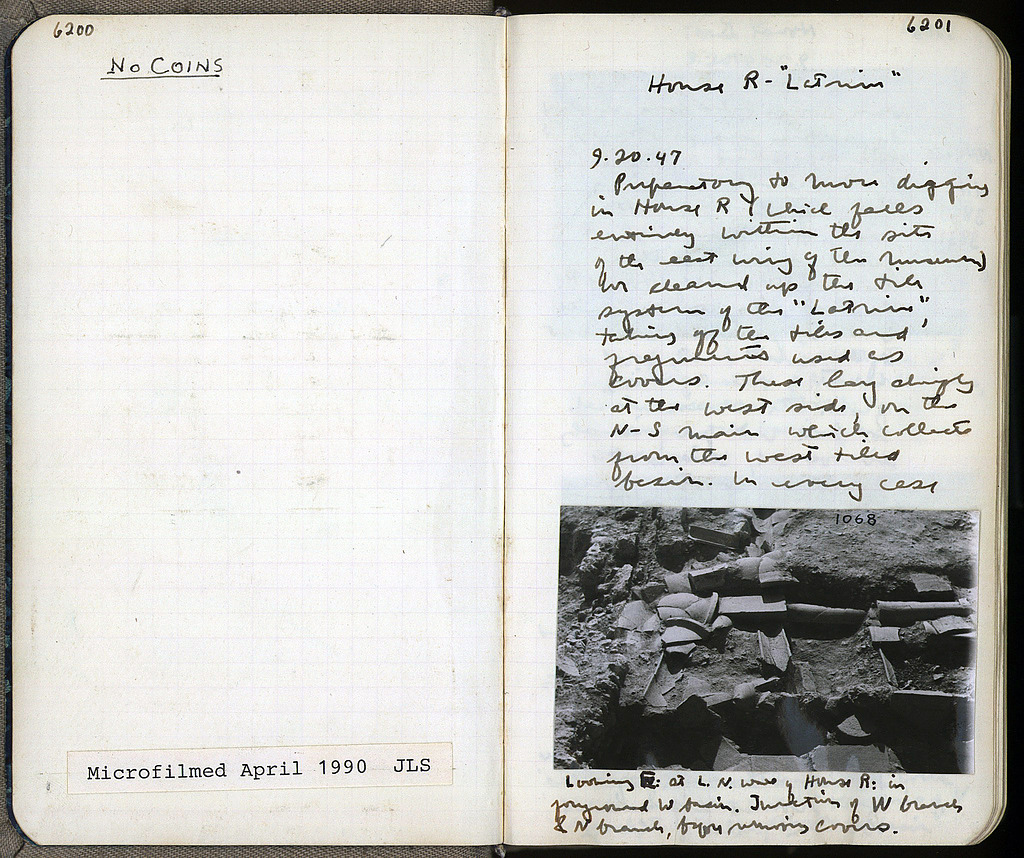 6200
No Coins
Microfilmed April 1990 JLS
6201
House R - "Latrine"
9.20.47
Preparatory to more digging
in House R (which falls
entirely within the site
of the east wing of the museum)
we cleaned up the tile
system of the "Latrine",
taking off the tiles and
fragments used as
covers. These lay deeply
at the west side, on the
N-S main which collects
from the west tiled
basin. In every case
1068
Looking E: at L. N. wall of House R: in
foreground W basin. Junction of W branch
& N branch, before removing covers.